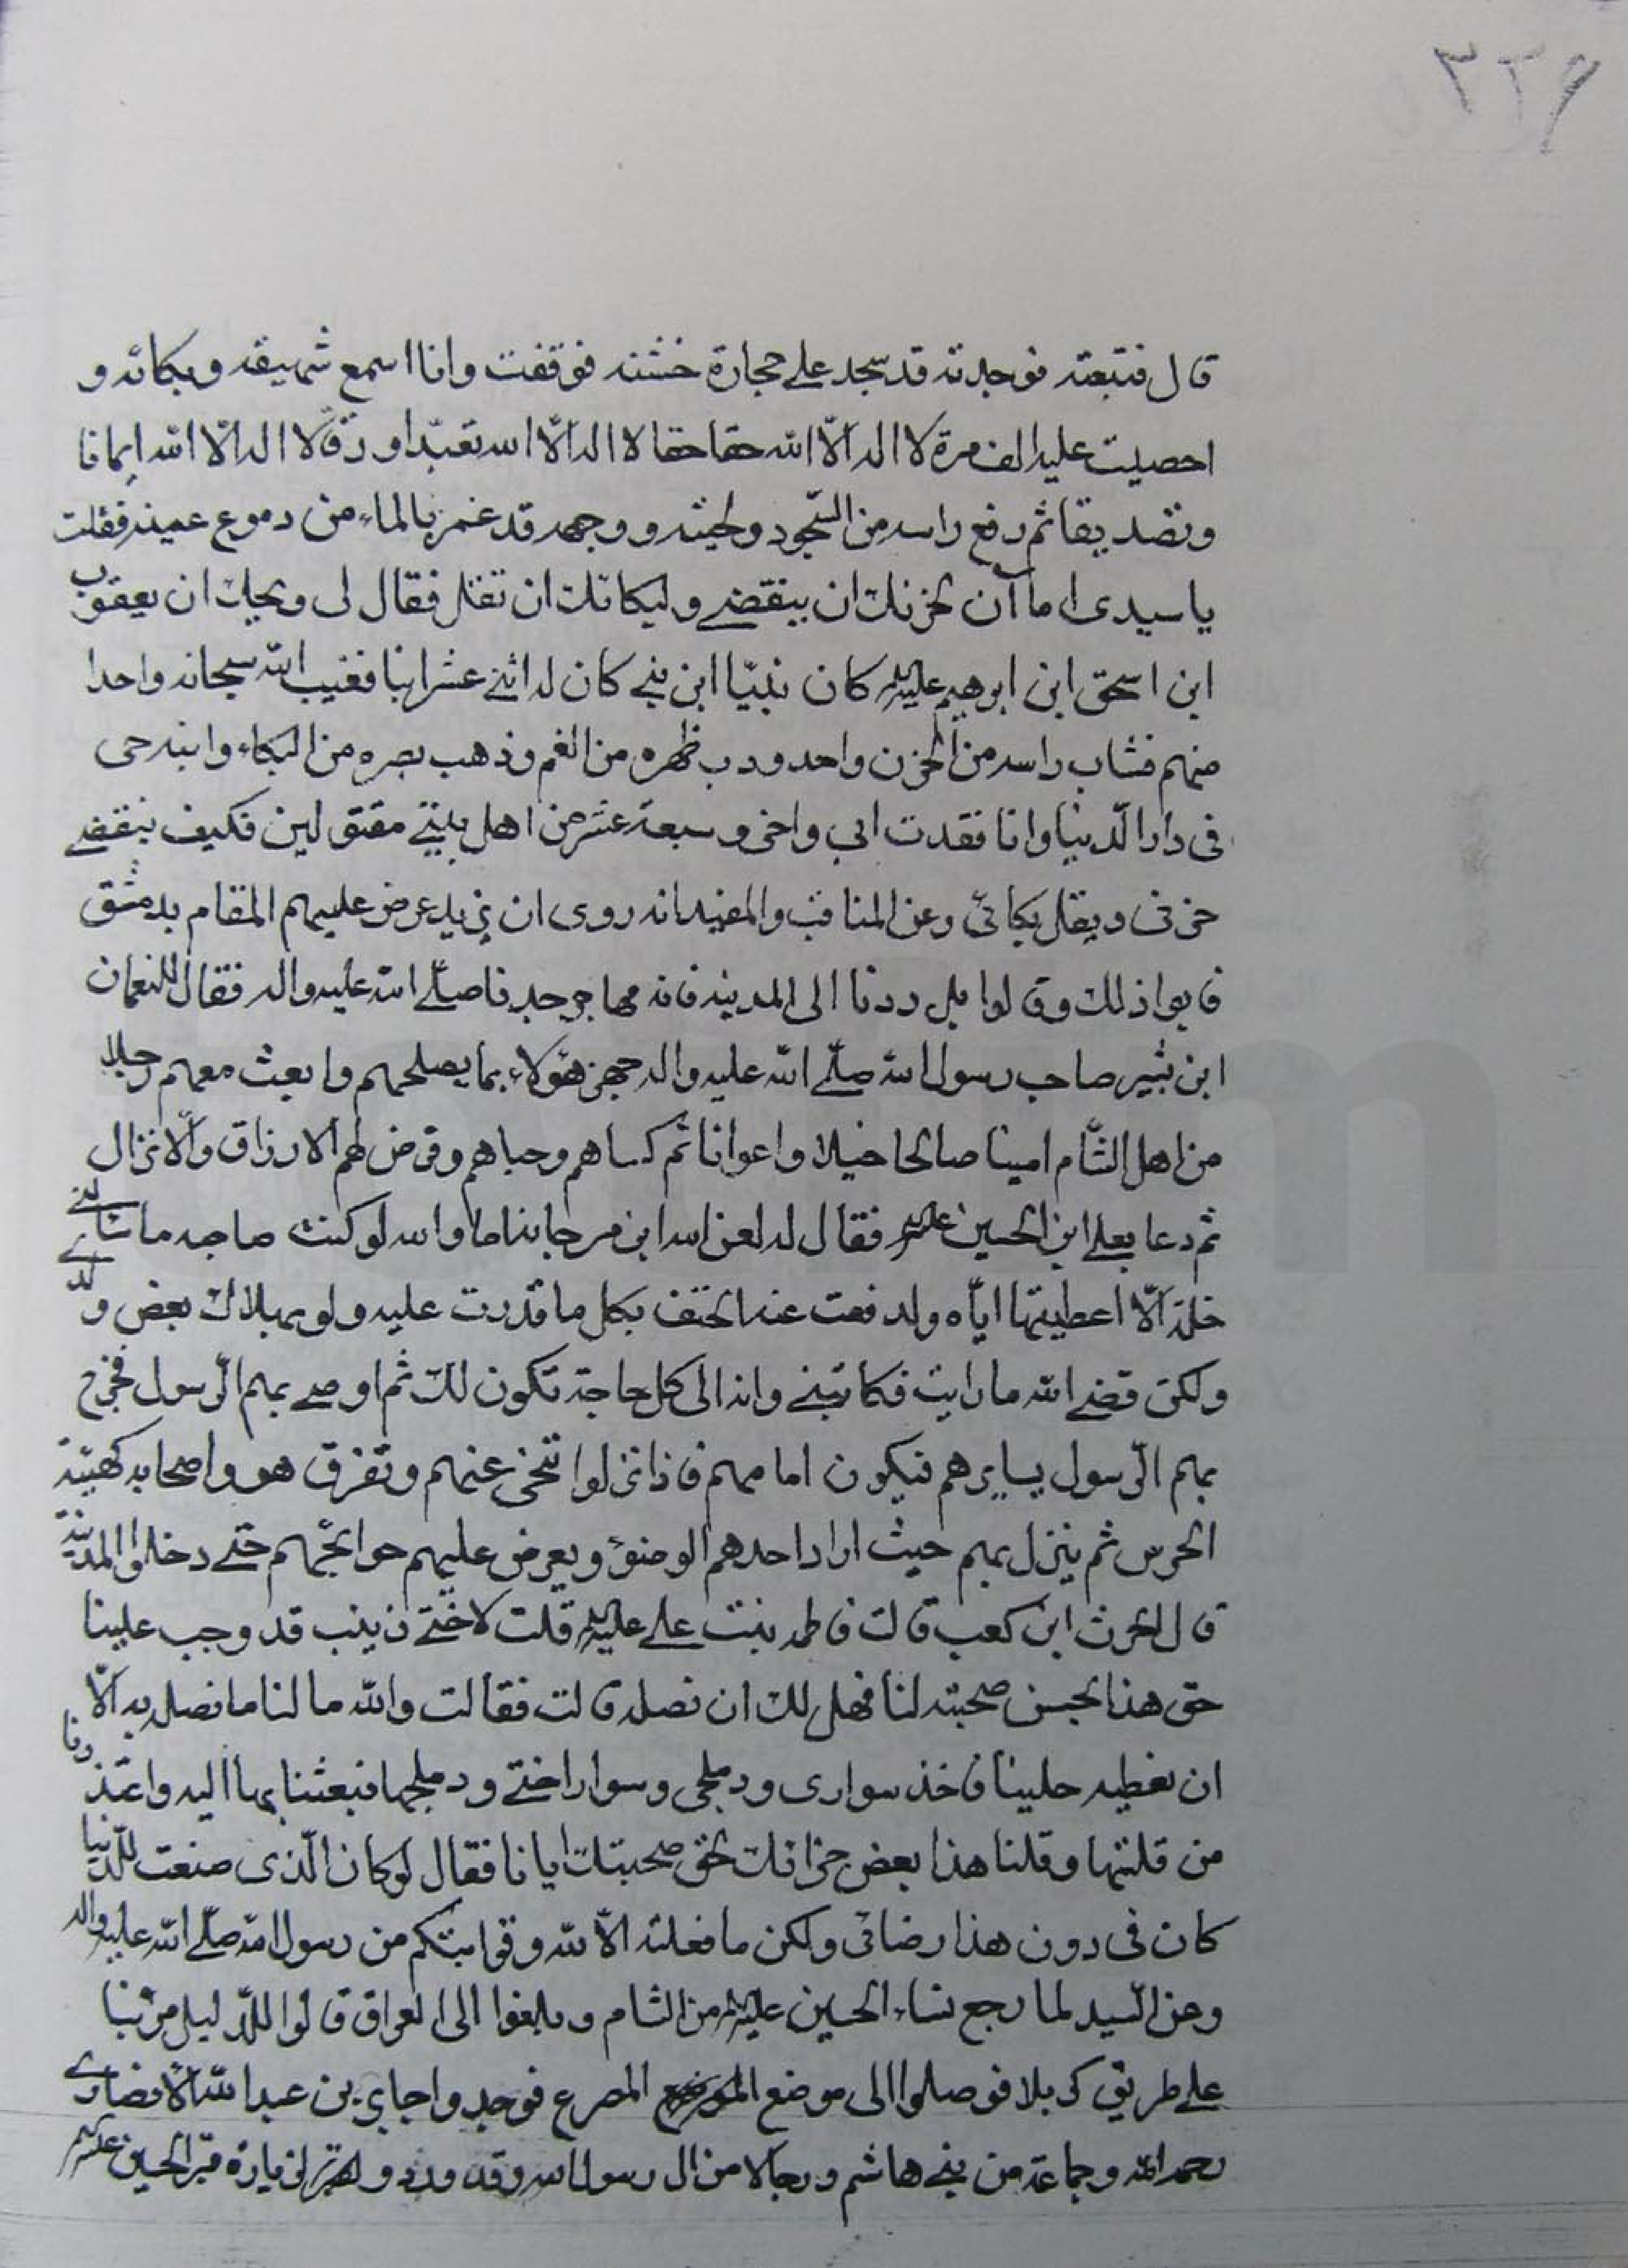 ٣٢٦
قال فتبعته فوجدته قد سجد على حجارة خشنه فوقفت وانا اسمع شهيقه وبكائه و
احصيت عليه الف مرة لا اله الّا الله حقا حقا لا اله الّا الله تعبّدا ورقّا لا اله الّا الله ايمانا
وتصديقا ثم رفع راسه من السّجود ولحيته ووجهه قد غمر بالماء من دموع عينه فقلت
يا سيدى اما آن لحزنك ان ينقضے ولبكائك ان تقلّ فقال لى ويحك ان يعقوب
ابن اسحق ابن ابرهيم عليه السلام كان نبيّا ابن نبے كان له اثنے عشر ابنا فغيب الله سبحانه واحدا
منهم فشاب راسه من الحزن واحدودب ظهره من الغم وذهب بصره من البكاء وابنه حى
فى دار الّدنيا وانا فقدت ابى واخى وسبعة عشر من اهل بيتے مقتولين فكيف ينقضے
حزنى ويقل بكائى وعن المناقب والمفيد انه روى ان يزيد عرض عليهم المقام بدمشق
فابوا ذلك وقالوا بل ردنا الى المدينه فانه مهاجر جدنا صلّے الله عليه واله فقال للنعمان
ابن بشير صاحب رسول الله صلّے الله عليه واله جهز هؤلاء بما يصلحهم وابعث معهم رجلا
من اهل الشّام امينا صالحا خيلا واعوانا ثم كساهم وحباهم وفرض لهم الارزاق والّانزال
ثم دعا بعلے ابن الحسين عليه السلام فقال له لعن الله ابن مرجانه اما والله لو كنت صاحبه ما سئالنے
خلة الّا اعطيتها ايّاه ولدفعت عنه الحتف بكل ما قدرت عليه ولو بهلاك بعض ولدے
ولكن قضے الله ما رايت فكاتبنے وانه الى كل حاجة تكون لك ثم اوصے بهم الّرسول فخرج
بهم الّرسول يسايرهم فيكون امامهم فاذا نزلوا تنحى عنهم وتفرق هو واصحابه كهيئة
الحرس ثم ينزل بهم حيث اراد احدهم الوضوء ويعرض عليهم حوائجهم حتے دخلوا المدينة
قال الحرث ابن كعب قالت فاطمه بنت علے عليه السلام قلت لاختے زينب قد وجب علينا
حق هذا لحسن صحبته لنا فهل لك ان نصله قالت فقالت والله ما لنا ما نصله به الّا
ان نعطيه حلينا فاخذ سوارى ودملجى وسوار اختے ودملجها فبعثنا بها اليه واعتذرنا
من قلتها وقلنا هذا بعض جزائك لحق صحبتك ايانا فقال لو كان الّذى صنعت للّدنيا
كان فى دون هذا رضائى ولكن ما فعلته الّا لله وقرابتكم من رسول الله صلّے الله عليه واله
وعن السّيد لما رجع نساء الحسين عليه السلام من الشام وبلغوا الى العراق قالوا للّدليل مرّ بنا
علے طريق كربلا فوصلوا الى موضع المصرع فوجدوا جابر بن عبد الله الّانصارے
رحمه الله وجماعة من بنے هاشم ورجالا من ال رسول الله وقد وردوا لزيارة قبر الحسين عليه السلام